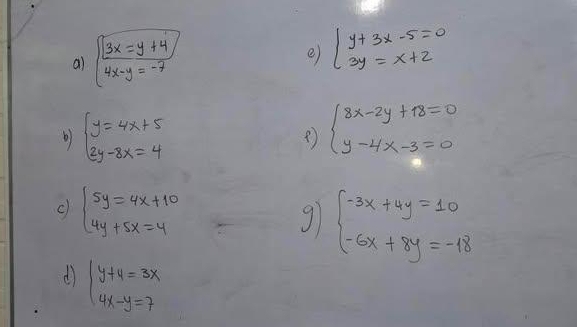 a) { 3x = y + 4
4x - y = -7
b) { y = 4x + 5
2y - 8x = 4
c) { 5y = 4x + 10
4y + 5x = 4
d) { y + 4 = 3x
4x - y = 7
e) { y + 3x - 5 = 0
3y = x + 2
f) { 8x - 2y + 18 = 0
y - 4x - 3 = 0
g) { -3x + 4y = 10
-6x + 8y = -18